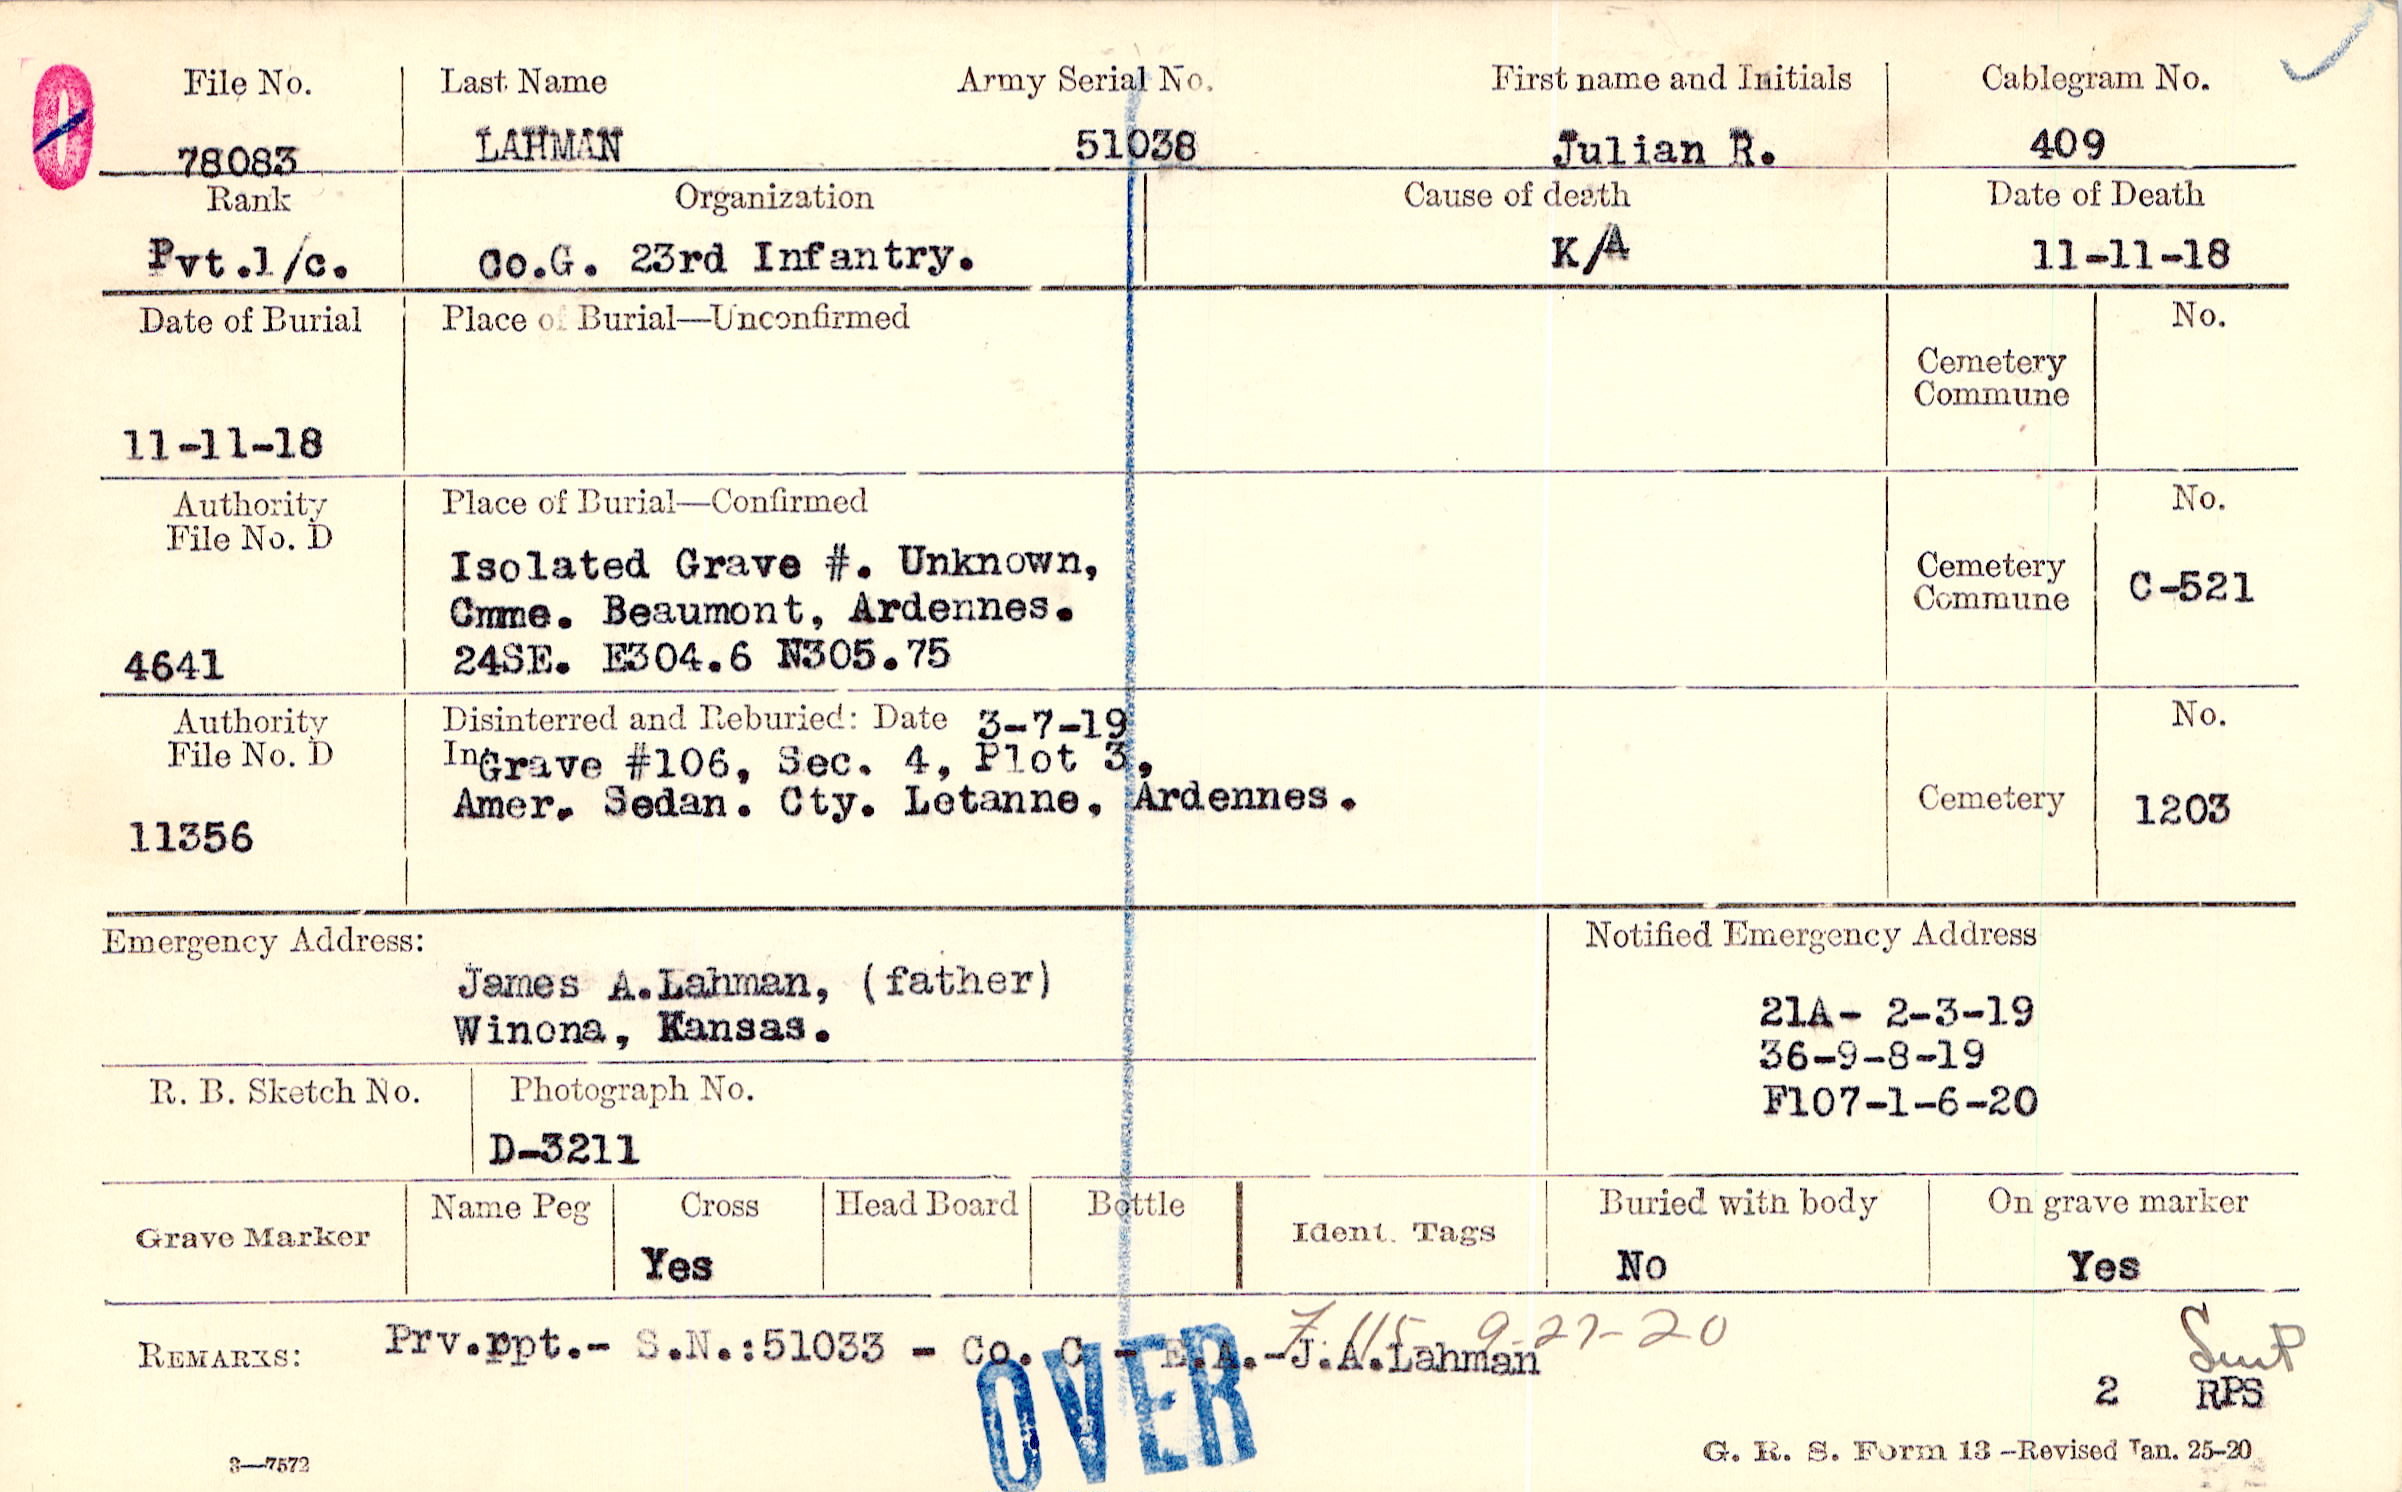 File No. Last Name Army Serial No. First name and Initials Cablegram No.
78083 LAHMAN 51038 Julian R. 409
Rank Organization Cause of death Date of Death
Pvt.1/c. Co.G. 23rd Infantry. K/A 11-11-18
Date of Burial Place of Burial—Unconfirmed No.
Cemetery
Commune
11-11-18
Authority Place of Burial—Confirmed No.
File No. D
Isolated Grave #. Unknown, Cemetery
Cmme. Beaumont, Ardennes. Commune C-521
4641 24SE. E304.6 N305.75
Authority Disinterred and Reburied: Date 3-7-19 No.
File No. D In Grave #106, Sec. 4, Plot 3,
Amer. Sedan. Cty. Letanne, Ardennes. Cemetery 1203
11356
Emergency Address: Notified Emergency Address
James A.Lahman, (father) 21A- 2-3-19
Winona, Kansas. 36-9-8-19
R. B. Sketch No. Photograph No. F107-1-6-20
D-3211
Grave Marker Name Peg Cross Head Board Bottle Ident. Tags Buried with body On grave marker
Yes No Yes
7 115 9-27-20
REMARKS: Prv.rpt.- S.N.:51033 - Co. C - E.A.-J.A.Lahman
OVER
2 RPS
3—7572 G. R. S. Form 13 -Revised Jan. 25-20